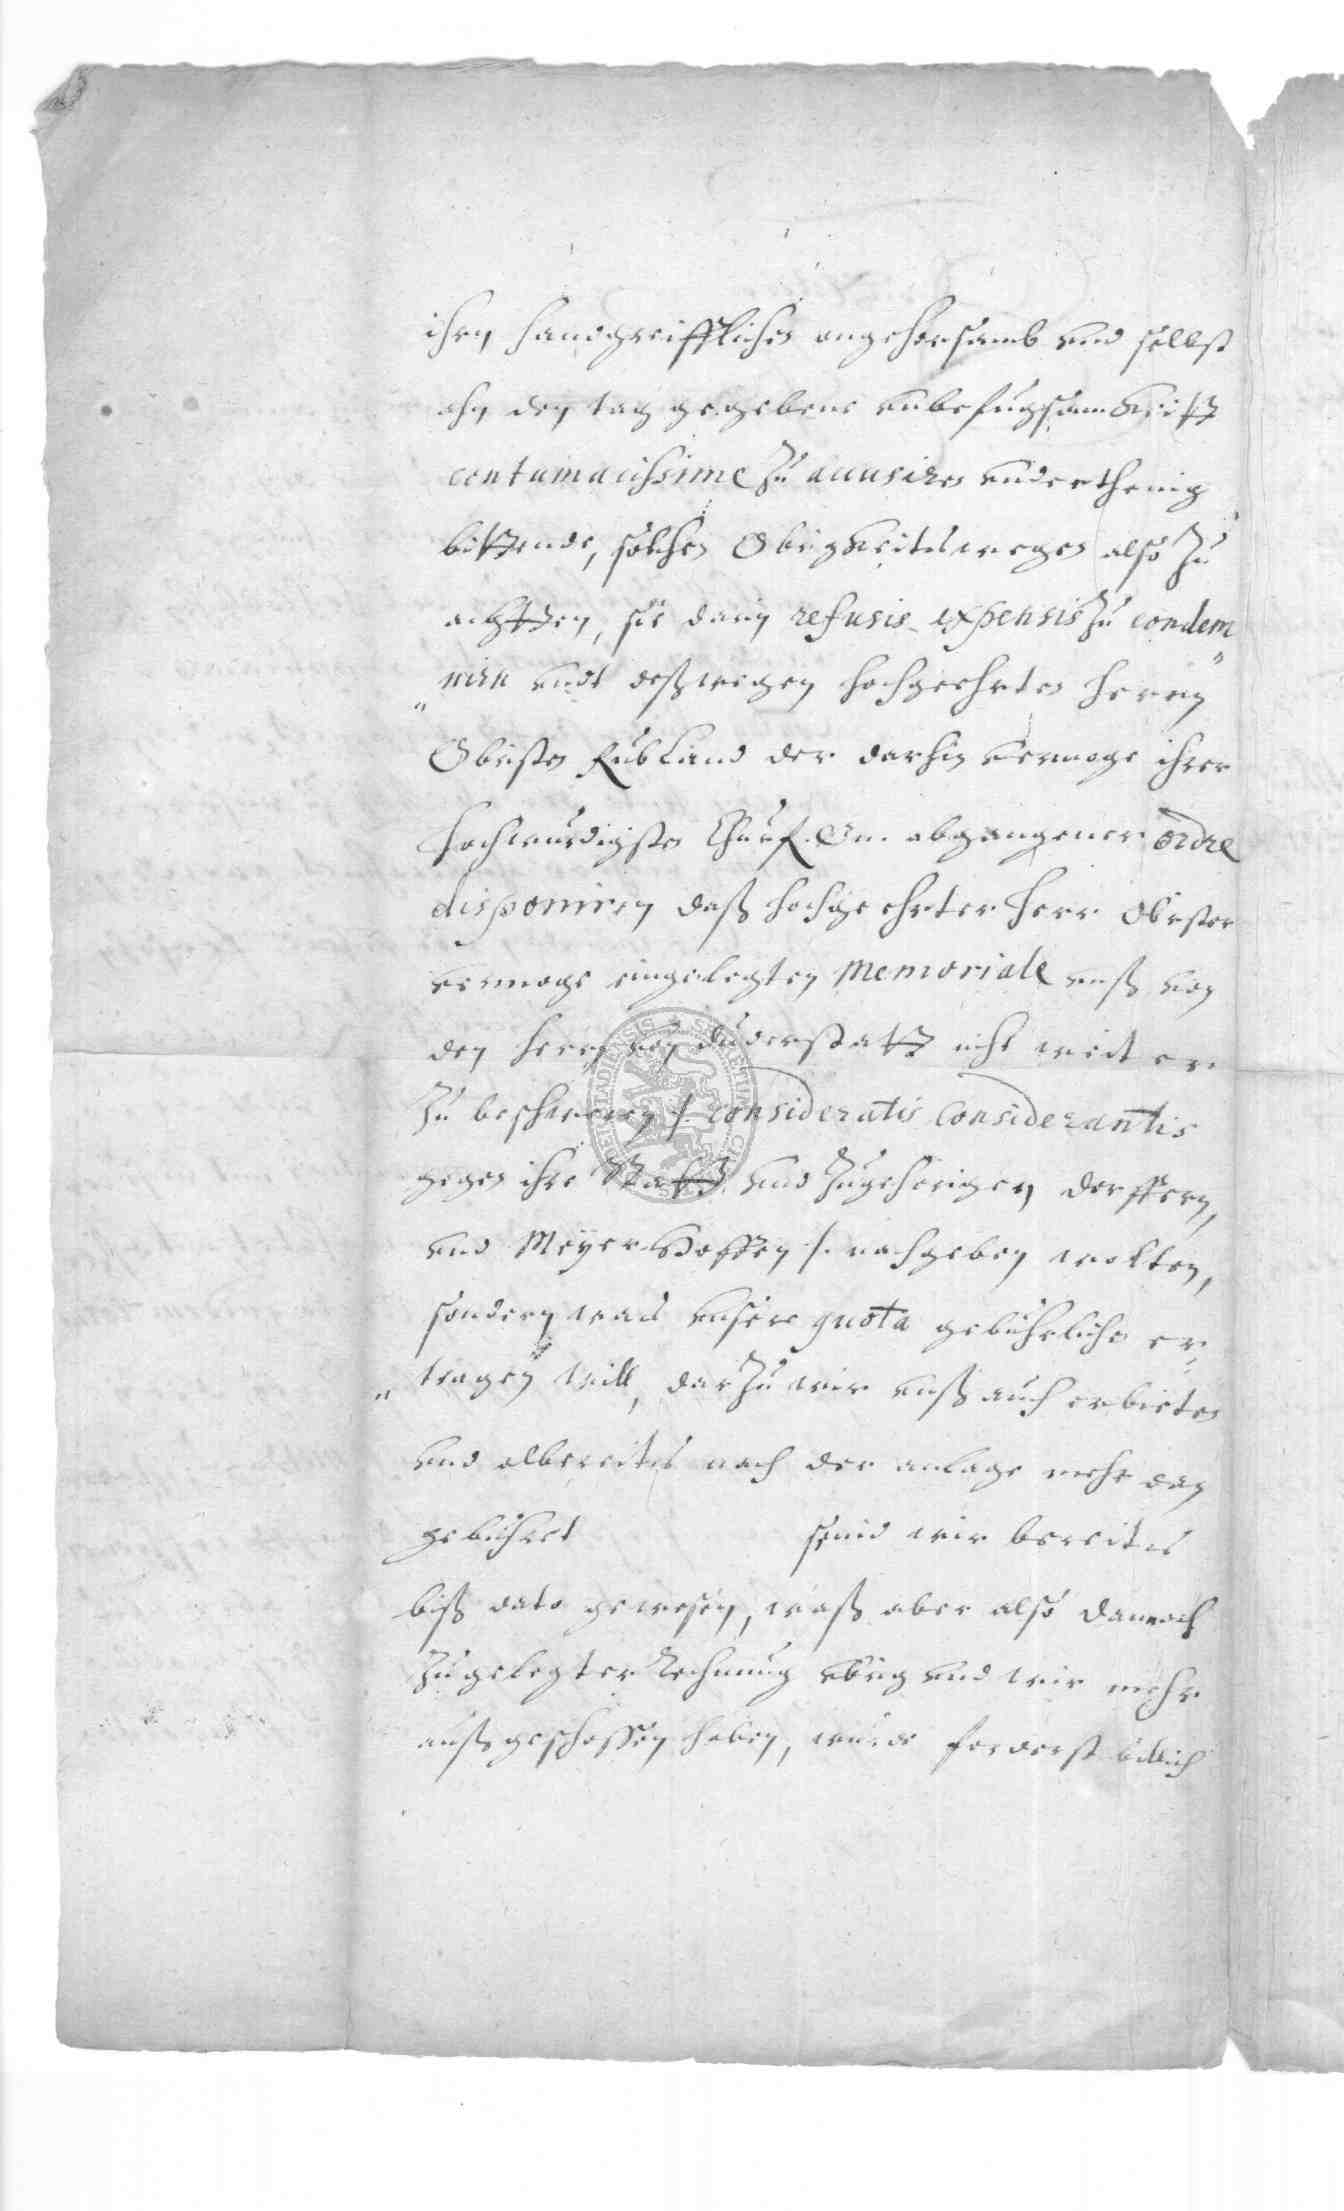 ihren handgreifflichen ungehorsamb und selbst
ahn den tag gegebene unbefugsamkeitt
contumacissime zu accusiren underthenig
bittende, solchen Obrigkeits wegen also zu
achtten, sie darin refusis expensis zu condem„
„nirn undt deßwegen hochgeehrten Herrn
Obristen Rubland der darhin vermoge ihrer
hochwurdigsten Churf. Gn. abgangener ordre
disponiren daß hochgeehrter Herr Obrister
vermoge eingelegten Memoriale unß von
den Herrn von Duderstatt nicht weiter
zu beschweren /: consideratis considerantis
gegen ihre Statt und zugehorigen Dorffern,
und Meyer Hoffen :/ nachgeben wolten,
sondern was unsere quota gebührlichen er„
„tragen will, darzu wir unß auch erbieten
und albereits nach der anlage mehr dan
gebühret seind wir bereits
biß dato gewesen, waß aber also darnach
zugelegter Rechnung übrig und wir mehr
außgeschossen haben, wurde forderst billich